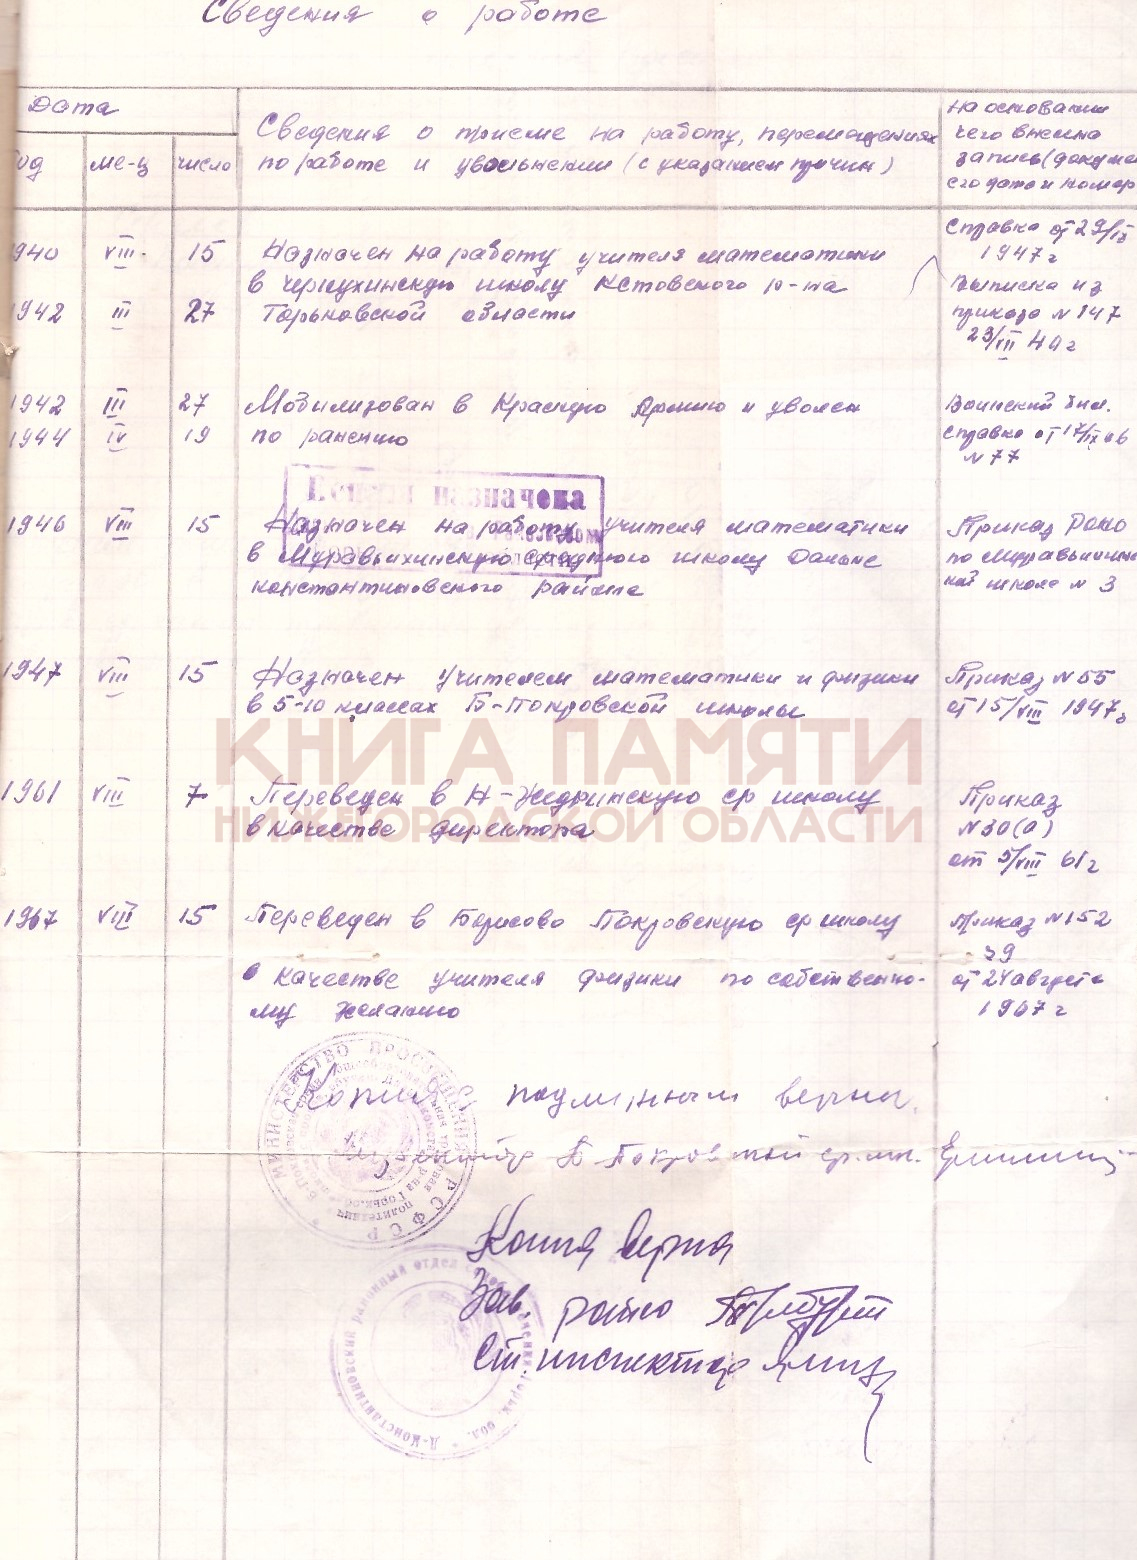 Сведения о работе
Дата
год ме-ц число
Сведения о приеме на работу, перемещениях
по работе и увольнении (с указанием причин)
на основании
чего внесена
запись (докумен
его дата и номер
1940 VIII 15 Назначен на работу учителя математики
в Чернухинскую школу Кстовского р-на
1942 III 27 Горьковской области
Справка от 29/IX
1947 г
Выписка из
приказа N 147
23/VII 40 г
1942 III 27 Мобилизован в Красную Армию и уволен
1944 IV 19 по ранению
Воинский бил.
справка от 17/IX 46
N 77
Пенсия назначена
1946 VIII 15 Назначен на работу учителя математики
в Муравьихинскую среднюю школу Дальне
константиновского района
Приказ Роно
по Муравьихинс
кой школе N 3
1947 VIII 15 Назначен учителем математики и физики
в 5-10 классах Б-Покровской школы
Приказ N 55
от 15/VIII 1947 г
КНИГА ПАМЯТИ
НИЖЕГОРОДСКОЙ ОБЛАСТИ
1961 VIII 7 Переведен в Н-Жедринскую ср школу
в качестве директора
Приказ
N 30 (а)
от 5/VIII 61 г
1967 VIII 15 Переведен в Борисово Покровскую ср школу
в качестве учителя физики по собственно-
му желанию
Приказ N 152
39
от 24 августа
1967 г
МИНИСТЕРСТВО ПРОСВЕЩЕНИЯ РСФСР
Копия с подлинным верна.
Директор Б-Покровской ср. шк.
Копия верна
Зав. районо
Ст. инспектор
Д-Константиновский районный отдел Горьк. обл.